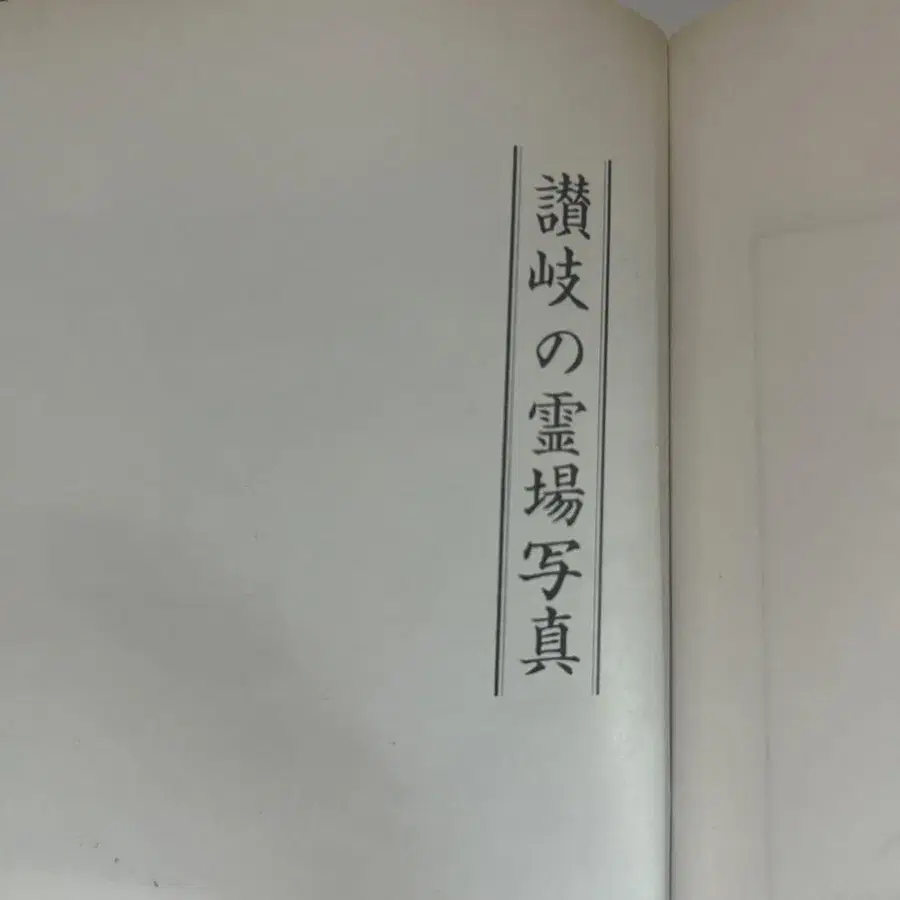 讃岐の霊場写真